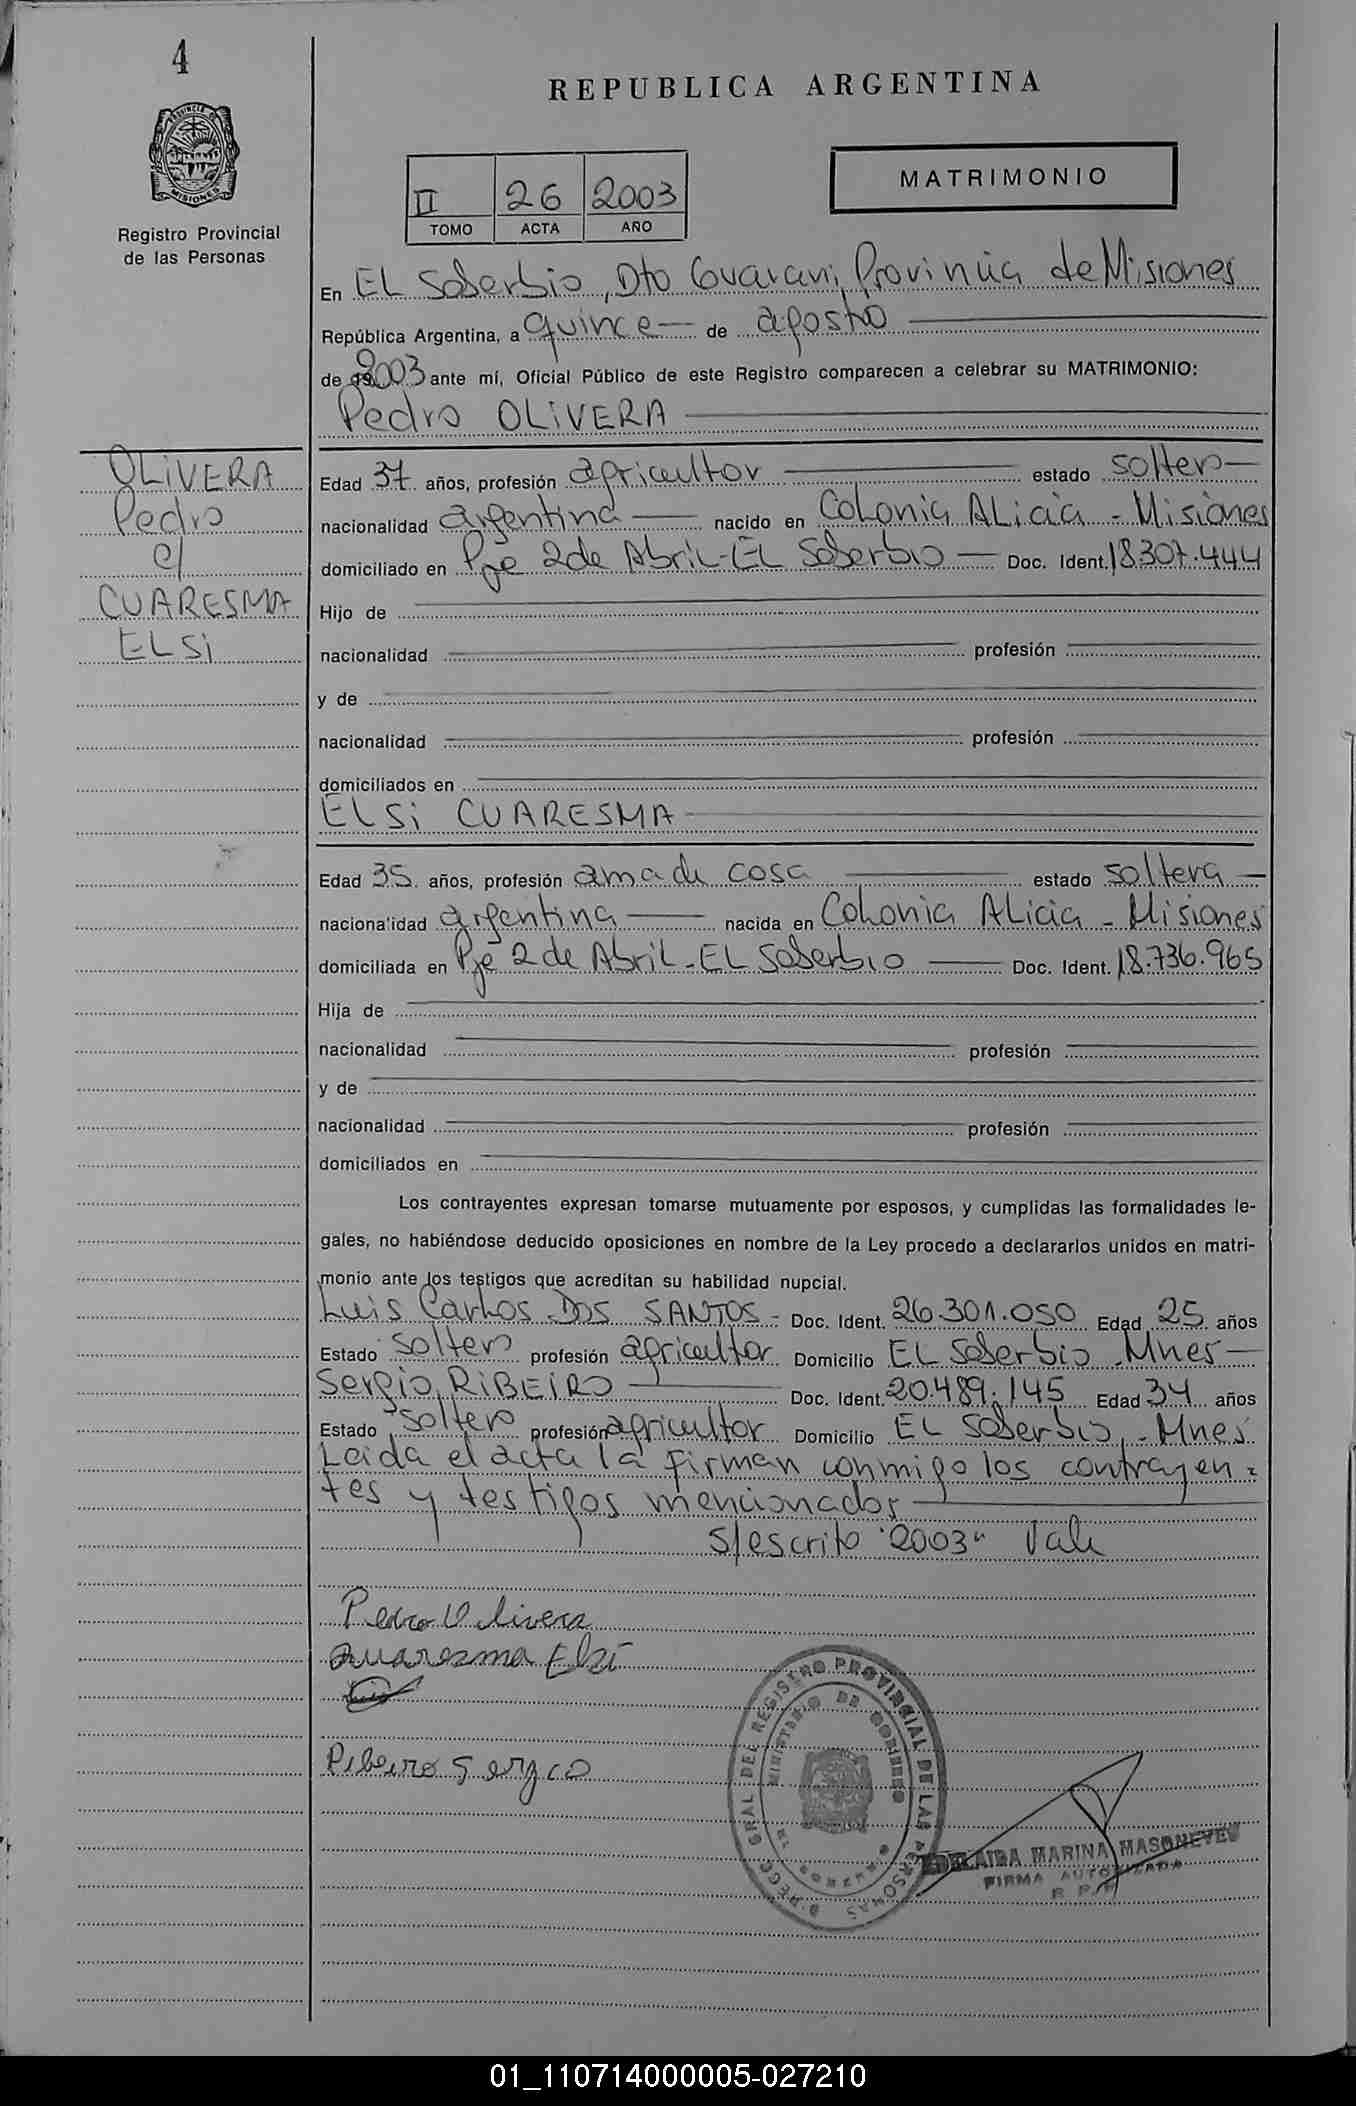 4
REPUBLICA ARGENTINA
PROVINCIA DE
MISIONES
Registro Provincial
de las Personas
II 26 2003
TOMO ACTA AÑO
MATRIMONIO
En EL Soberbio, Dto Guarani, Provincia de Misiones
República Argentina, a quince de agosto
de 2003 ante mí, Oficial Público de este Registro comparecen a celebrar su MATRIMONIO:
Pedro OLIVERA
OLIVERA
Pedro
c/
CUARESMA
ELSi
Edad 37 años, profesión agricultor estado soltero
nacionalidad argentina nacido en Colonia ALicia - Misiones
domiciliado en Pje 2 de Abril - EL Soberbio Doc. Ident. 18.307.444
Hijo de
nacionalidad profesión
y de
nacionalidad profesión
domiciliados en
ELSi CUARESMA
Edad 35 años, profesión ama de casa estado soltera
nacionalidad argentina nacida en Colonia ALicia - Misiones
domiciliada en Pje 2 de Abril - EL Soberbio Doc. Ident. 18.736.965
Hija de
nacionalidad profesión
y de
nacionalidad profesión
domiciliados en
Los contrayentes expresan tomarse mutuamente por esposos, y cumplidas las formalidades le-
gales, no habiéndose deducido oposiciones en nombre de la Ley procedo a declararlos unidos en matri-
monio ante los testigos que acreditan su habilidad nupcial.
Luis Carlos DOS SANTOS - Doc. Ident. 26.301.050 Edad 25 años
Estado soltero profesión agricultor Domicilio EL Soberbio - Mnes
Sergio RIBEIRO Doc. Ident. 20.489.145 Edad 34 años
Estado soltero profesión agricultor Domicilio EL Soberbio - Mnes
Leida el acta la firman conmigo los contrayen=
tes y testigos mencionados
S/escrito "2003" Vale
Pedro Olivera
Quaresma Elsi
Ribeiro Sergio
GRAL DEL REGISTRO PROVINCIAL DE LAS PERSONAS
MINISTERIO DE GOBIERNO
MARINA
FIRMA AUTORIZADA
R P P
01_110714000005-027210